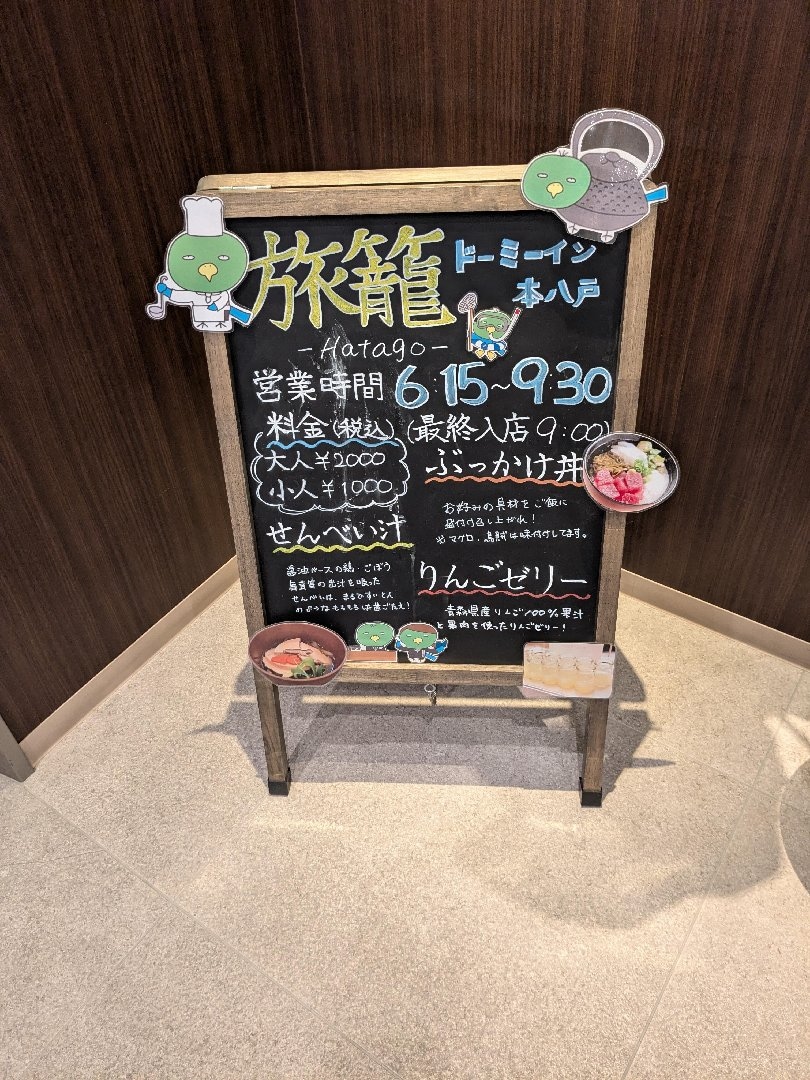 旅籠
ドーミーイン
本八戸
-Hatago-
営業時間 6:15~9:30
料金(税込) (最終入店 9:00)
大人¥2000
小人¥1000
ぶっかけ丼
お好みの具材をご飯に
盛付け召し上がれ!
※マグロ、烏賊は味付けしてます。
せんべい汁
醤油ベースの鶏・ごぼう
の出汁を吸った
せんべいは、まるですいとん
のようなもちもちは歯ごたえ!
りんごゼリー
青森県産りんご100%果汁
と果肉を使ったりんごゼリー!